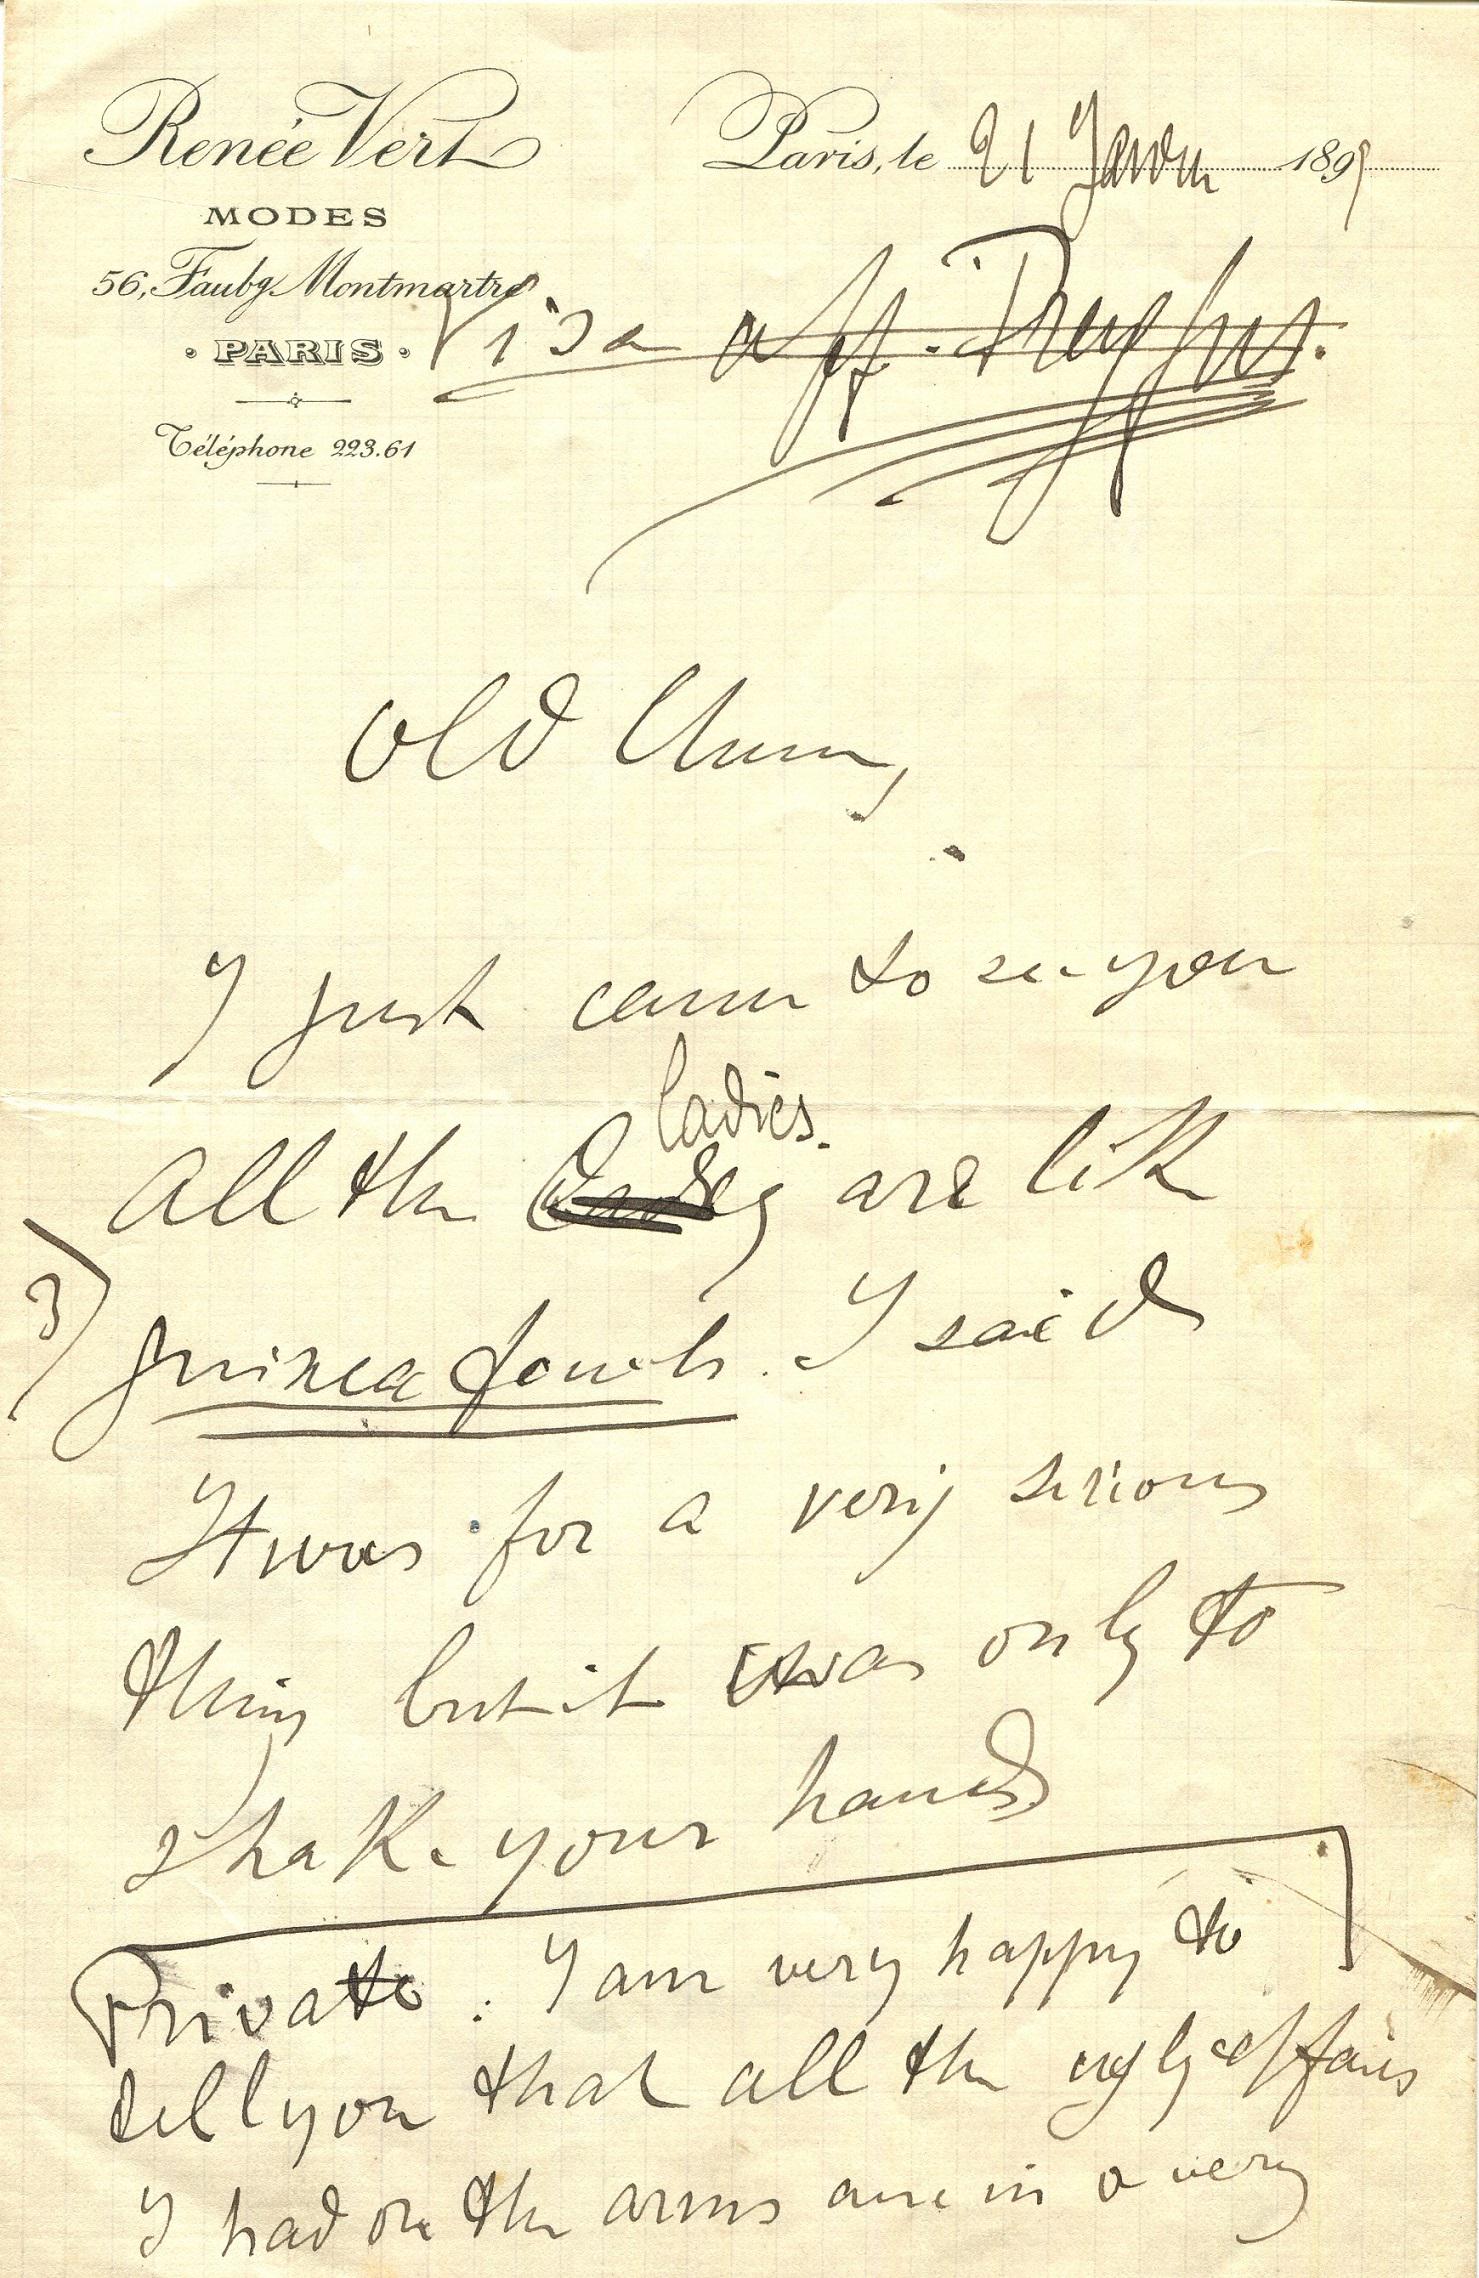 Renée Vert
MODES
56, Faubg Montmartre
PARIS
Téléphone 223.61
Paris, le 21 Janvier 189
Visa aff. Dreyfus.
Old Chum,
I just came to see you
ladies.
All the are like
3)
guinea fowls. I said
It was for a very serious
thing but it was only to
shake your hands
Private : I am very happy to
tell you that all the ugly affairs
I had on the arms are in a very